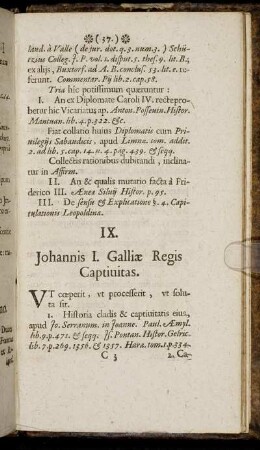 ❀( 37. )❀
länd. à Valle ( de jur. dot. q. 3. num. 3. ) Schü-
rzsius Colleg. J. P. vol. 1. disput. 5. thes. 9. lit. B.
ex aliis, Buxtorf. ad A. B. conclus. 53. lit. e. re-
ferunt. Commentar. Pij lib. 2. cap. 58.
Tria hîc potissimum quæruntur :
I. An ex Diplomate Caroli IV. rectè pro-
betur hic Vicariatus ap. Anton. Possevin. Histor.
Mantuan. lib. 4. p. 322. &c.
Fiat collatio huius Diplomatis cum Pri-
uilegijs Sabaudicis, apud Limnæ. tom. addit.
2. ad lib. 5. cap. 14. n. 4. pag. 459. & seqq.
Collectis rationibus dubitandi, inclina-
tur in Affirm.
II. An & qualis mutatio facta à Fri-
derico III. Æneæ Siluij Histor. p. 95.
III. De sensu & Explicatione §. 4. Capi-
tulationis Leopoldinæ.
IX.
Johannis I. Galliæ Regis
Captiuitas.
VT cœperit, vt processerit, vt solu-
ta sit.
1. Historia cladis & captiuitatis eius,
apud Jo. Serranum. in Joanne. Paul. Æmyl.
lib. 9. p. 472. & seqq. Js. Pontan. Histor. Gelric.
lib. 7. p. 269. 1356. & 1357. Haræ. tom. 1. p. 334.
C 3 2. Ca-